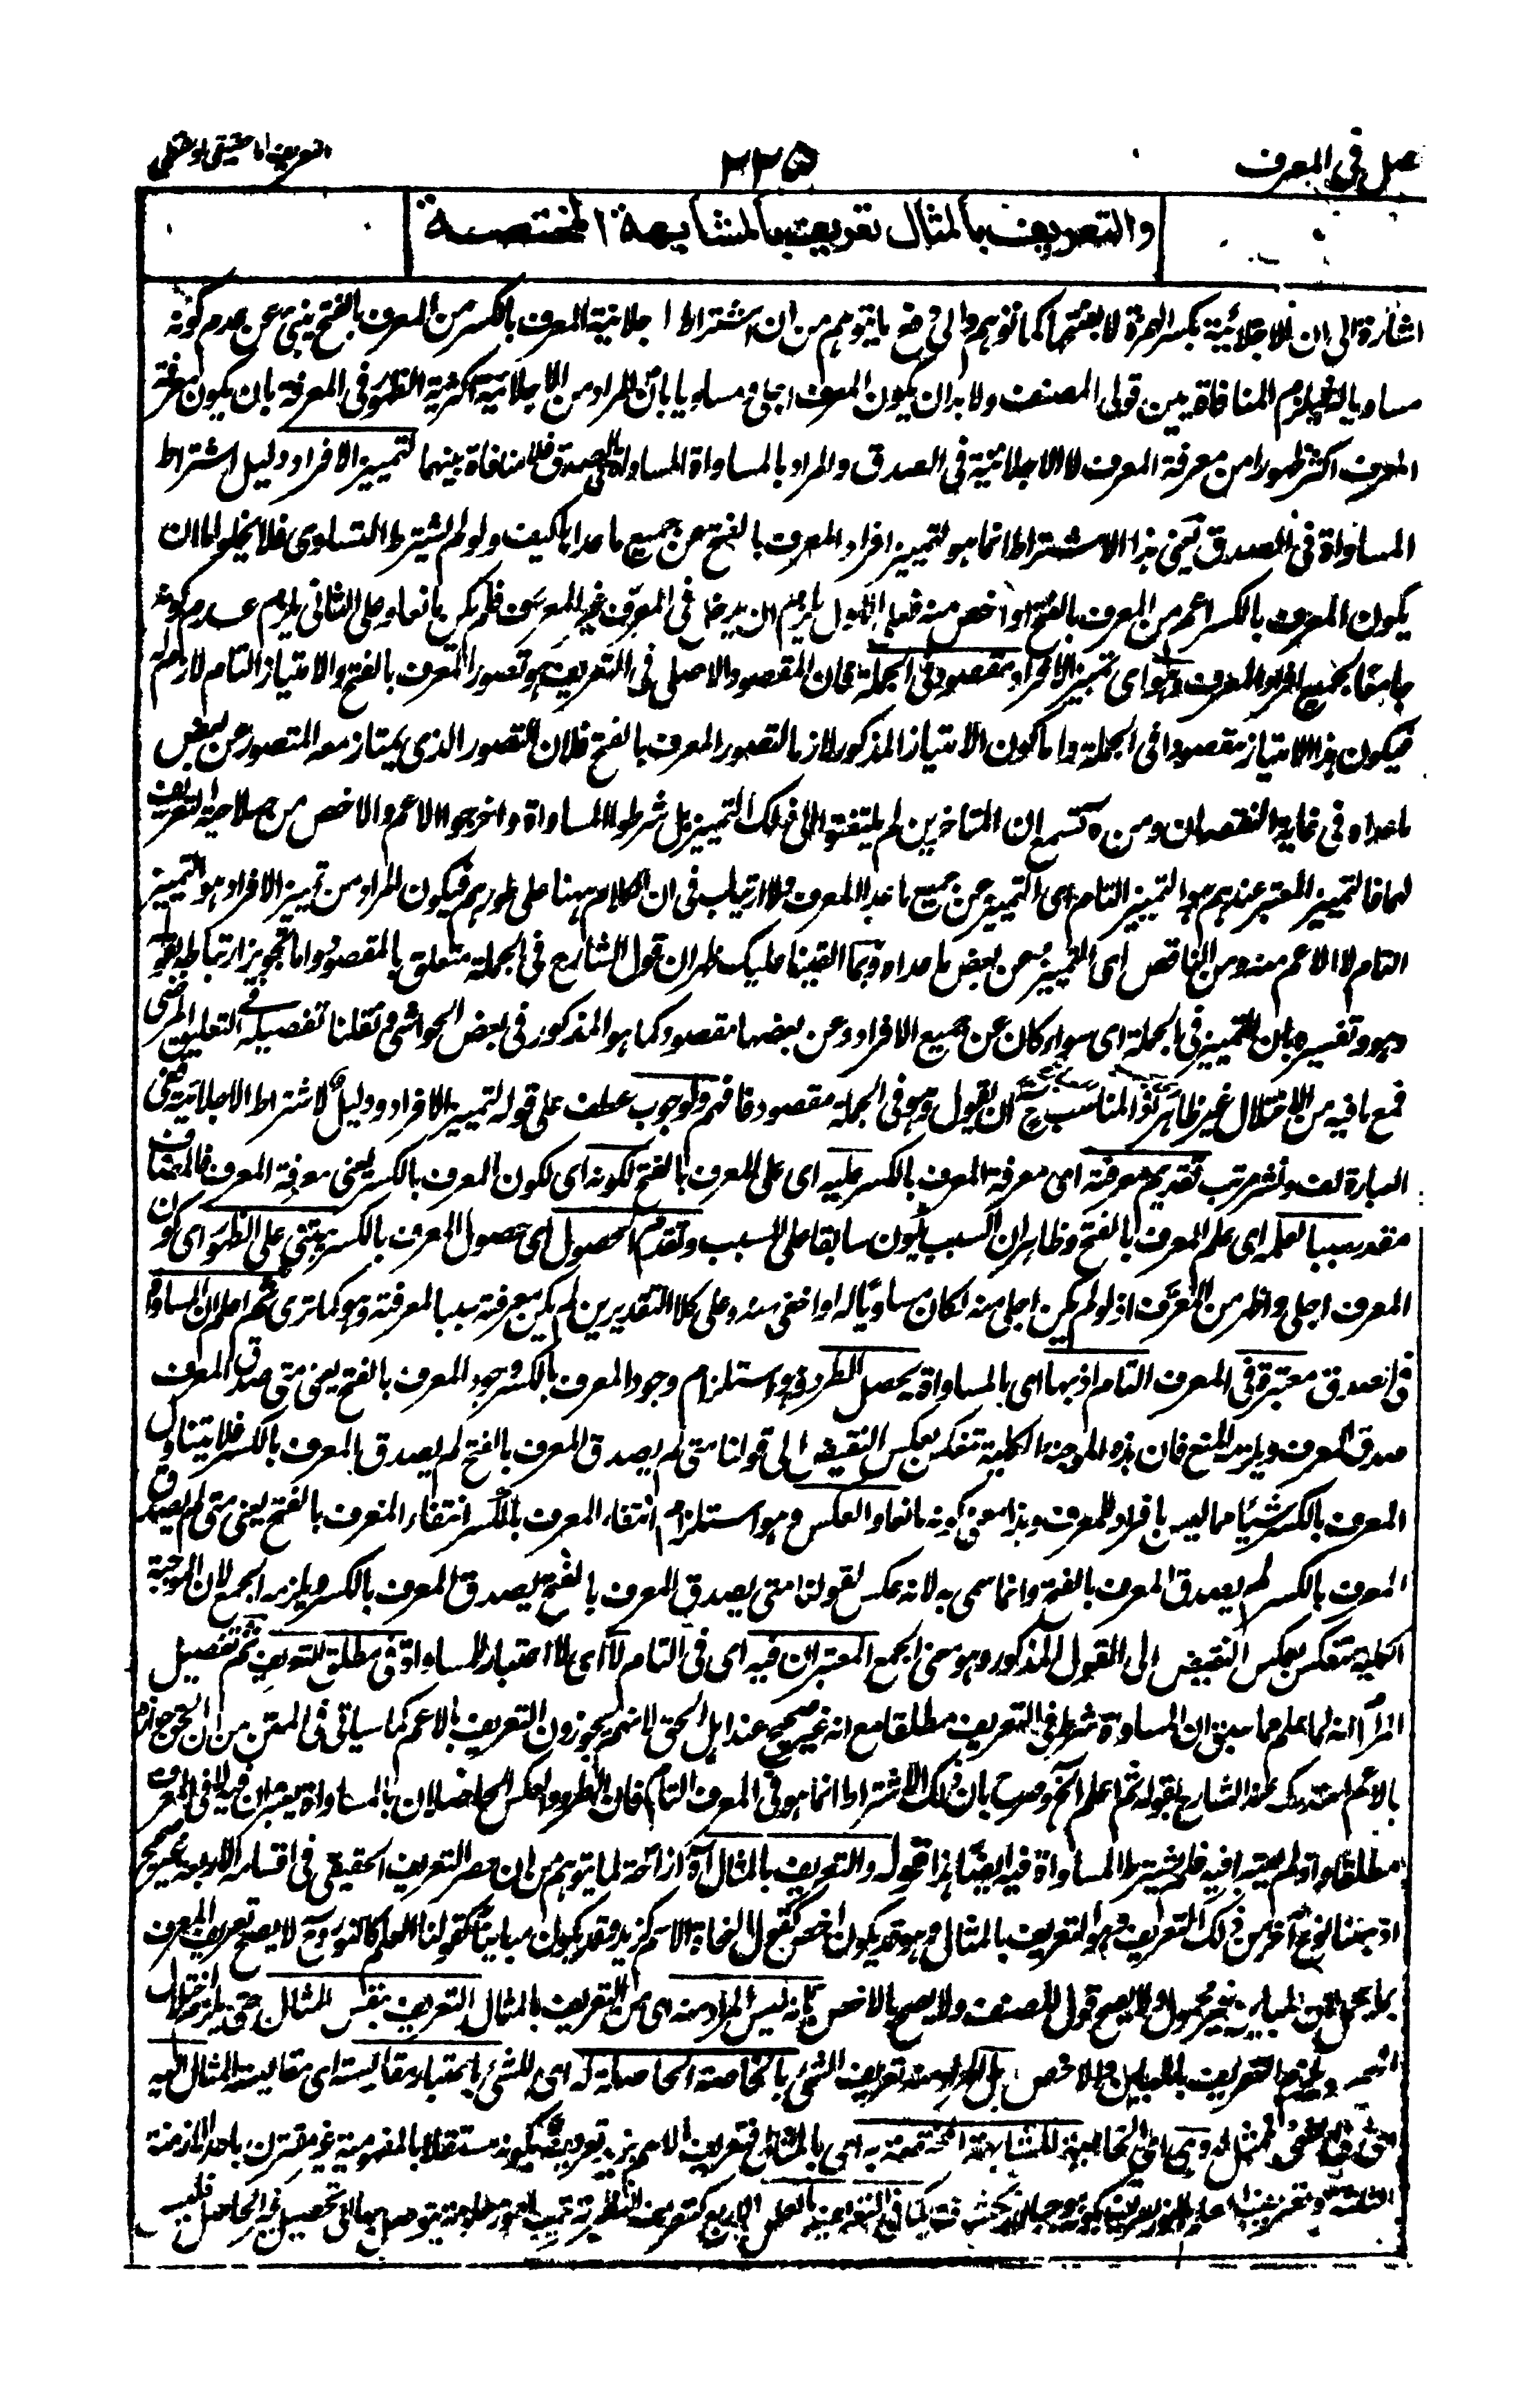 فصل فی المعرف
٢٢٥
التعریف اما حقیقی او لفظی
والتعریف بالمثال تعریف بالمشابهة المختصة
اشارة الی ان الاجلائیة بکسر الهمزة لا بفتحها کما توهم والی دفع ما یتوهم من ان اشتراط اجلائیة المعرف بالکسر من المعرف بالفتح ینبئ عن عدم کونه
مساویا له فیلزم المنافاة بین قولی المصنف ولا بد ان یکون المعرف اجلی و مساویا بان المراد من الاجلائیة اکثریة الظهور فی المعرفة بان یکون معرفة
المعرف اکثر ظهورا من معرفة المعرف لا الاجلائیة فی الصدق والمراد بالمساواة المساواة فی الصدق فلا منافاة بینهما لتمییز الافراد دلیل اشتراط
المساواة فی الصدق یعنی هذا الاشتراط انما هو لتمییز افراد المعرف بالفتح عن جمیع ما عداها کیف ولو لم یشترط التساوی فلا یخلو اما ان
یکون المعرف بالکسر اعم من المعرف بالفتح او اخص منه فعلی الاول یلزم ان یدخل فی المعرف غیر المعرف فلم یکن مانعا و علی الثانی یلزم عدم کونه
جامعا لجمیع افراد المعرف وهو ای تمییز الافراد مقصود فی الجملة فان المقصود الاصلی فی التعریف هو تصور المعرف بالفتح والامتیاز التام لازم له
فیکون هذا الامتیاز مقصودا فی الجملة واما کون الامتیاز المذکور لازما لتصور المعرف بالفتح فلان التصور الذی یمتاز معه المتصور عن بعض
ما عداه فی غایة النقصان ومن ثم تسمع ان المتاخرین لم یلتفتوا الی ذلک التمییز بل شرطوا المساواة واخرجوا الاعم والاخص من صلاحیة التعریف
لهما فالتمییز المعتبر عندهم هو التمییز التام ای التمییز عن جمیع ما عدا المعرف ولا ارتیاب فی ان الکلام ههنا علی طورهم فیکون المراد من تمییز الافراد هو التمییز
التام لا الاعم منه ومن الناقص ای التمییز عن بعض ما عداه وبما القینا علیک ظهر ان قول الشارح فی الجملة متعلق بالمقصود واما تجویز ارتباطه
وهو وتفسیره بان التمییز فی الجملة ای سواء کان عن جمیع الافراد وعن بعضها مقصود کما هو المذکور فی بعض الحواشی ونقلنا تفصیله فی التعلیق المرضی
فمع ما فیه من الاختلال غیر ظاهر المناسب ح ان یقول وهو فی الجملة مقصود فافهم ولوجوب عطف علی قوله لتمییز الافراد ودلیل لاشتراط الاجلائیة ففی
العبارة لف ونشر مرتب تقدیم معرفته ای معرفة المعرف بالکسر علیه ای علی المعرف بالفتح لکونه ای لکون المعرف بالکسر یعنی معرفة المعرف فالمضاف
مقدر سببا لعلمه ای علم المعرف بالفتح وظاهر ان السبب یکون سابقا علی المسبب وتقدم الحصول ای حصول المعرف بالکسر یبتنی علی الظهور ای کون
المعرف اجلی واظهر من المعرف اذ لو لم یکن اجلی منه لکان مساویا له او اخفی منه وعلی کلا التقدیرین لم یکن معرفته سببا لمعرفته وهو کما تری ثم اعلم ان المساواة
فی الصدق معتبرة فی المعرف التام اذ بها ای بالمساواة یحصل الطرد وهو استلزام وجود المعرف بالکسر وجود المعرف بالفتح یعنی متی صدق المعرف
صدق المعرف ویلزمه المنع فان هذه الموجبة الکلیة تنعکس بعکس النقیض الی قولنا متی لم یصدق المعرف بالفتح لم یصدق المعرف بالکسر فلا یتناول
المعرف بالکسر شیئا مما لیس بافراد للمعرف وهذا معنی کونه مانعا والعکس وهو استلزام انتفاء المعرف بالکسر انتفاء المعرف بالفتح یعنی متی لم یصدق
المعرف بالکسر لم یصدق المعرف بالفتح وانما سمی به لانه عکس لقولنا متی یصدق المعرف بالفتح یصدق المعرف بالکسر ویلزمه الجمع لان الموجبة
الکلیة تنعکس بعکس النقیض الی القول المذکور وهو معنی الجمع المعتبران فیه ای فی التام لا ای لا اعتبار للمساواة فی مطلق التعریف ثم تفصیل
المرام انه لما علم مما سبق ان المساواة شرط فی التعریف مطلقا مع انه غیر صحیح عند اهل الحق لانهم یجوزون التعریف بالاعم کما سیاتی فی المتن من ان الحق جوازه
بالاعم استدرک عنه الشارح بقوله ثم اعلم آه وصرح بان ذلک الاشتراط انما هو فی المعرف التام فان الطرد والعکس الحاصلان بالمساواة یعتبران فیه لا فی المعرف
مطلقا واذ لم یعتبرا فیه فلم یشترط المساواة فیه ایضا هذا قوله والتعریف بالمثال آه ازاحة لما یتوهم من ان حصر التعریف الحقیقی فی اقسامه الاربعة غیر صحیح
اذ ههنا نوع آخر من ذلک التعریف وهو التعریف بالمثال وهو قد یکون اخص کقول النحاة الاسم کزید وقد یکون مباینا کقولنا العلم کالنور وح لا یصح تعریف المعرف
بما یحمل لان المباین غیر محمول ولا یصح قول المصنف ولا یصح بالاخص بانه لیس المراد منه ای من التعریف بالمثال التعریف بنفس المثال حتی یلزم اختلال
الحصر ویلزم التعریف بالمباین والاخص بل المراد منه تعریف الشیء بالخاصة الحاصلة له ای للشیء باعتبار مقایسته ای مقایسة المثال الیه
الممثل له وهی ای الخاصة المشابهة المختصة به ای بالمثال فتعریف الاسم بزید تعریف بکونه مستقلا بالمفهومیة غیر مقترن باحد الازمنة
الثلاثة